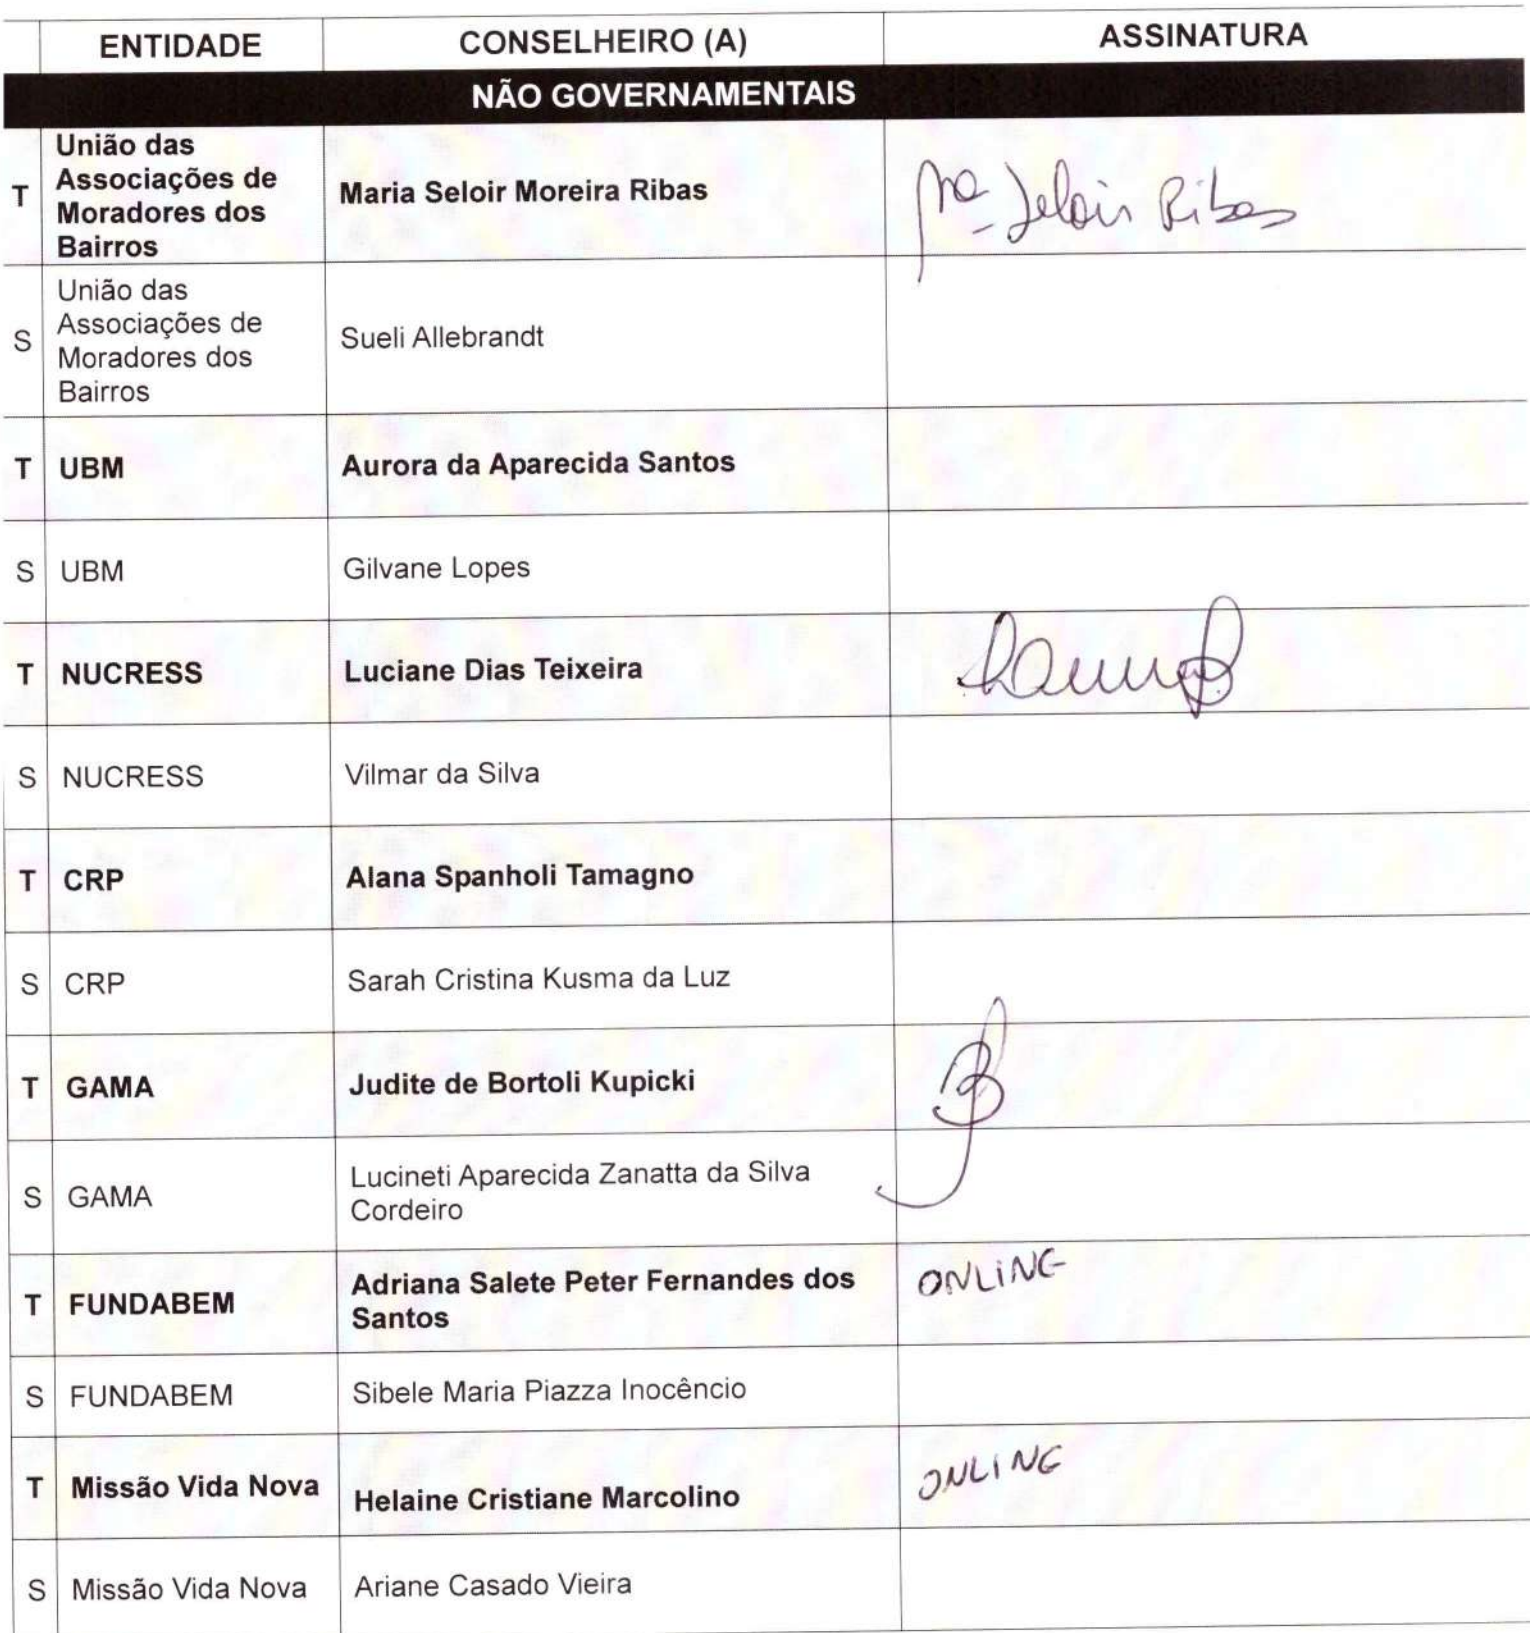 ENTIDADE CONSELHEIRO (A) ASSINATURA
NÃO GOVERNAMENTAIS
União das
Associações de
T Moradores dos Maria Seloir Moreira Ribas Mª Seloir Ribas
Bairros
União das
Associações de
S Moradores dos Sueli Allebrandt
Bairros
T UBM Aurora da Aparecida Santos
S UBM Gilvane Lopes
T NUCRESS Luciane Dias Teixeira
S NUCRESS Vilmar da Silva
T CRP Alana Spanholi Tamagno
S CRP Sarah Cristina Kusma da Luz
T GAMA Judite de Bortoli Kupicki
S GAMA Lucineti Aparecida Zanatta da Silva
Cordeiro
T FUNDABEM Adriana Salete Peter Fernandes dos ONLINE
Santos
S FUNDABEM Sibele Maria Piazza Inocêncio
T Missão Vida Nova Helaine Cristiane Marcolino ONLINE
S Missão Vida Nova Ariane Casado Vieira